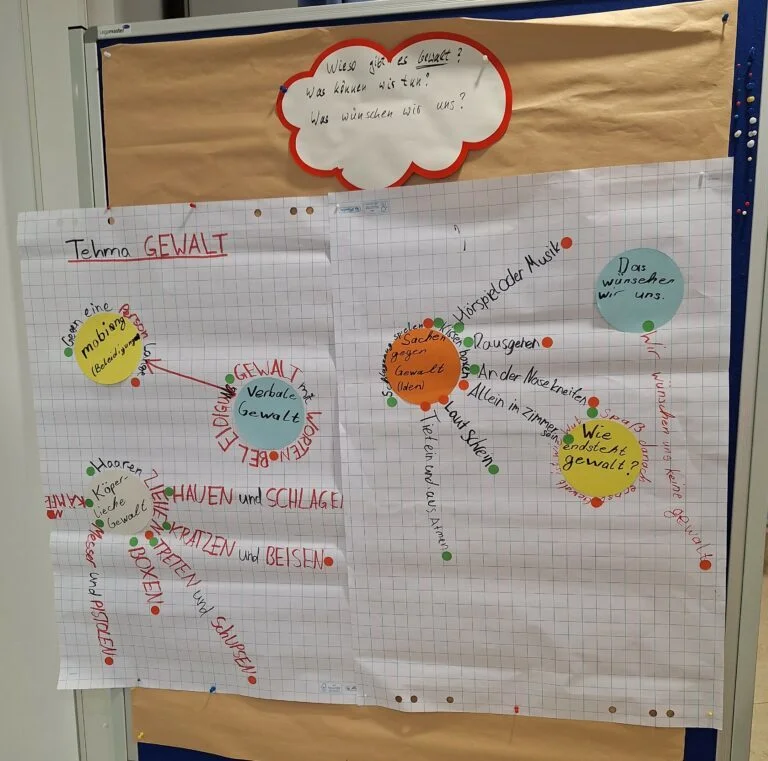 Wieso gibt es Gewalt?
Was können wir tun?
Was wünschen wir uns?
Tehma GEWALT
Gegen eine Person
mobiing
(Beleidigung)
Lange
Verbale
Gewalt
GEWALT mit WORTEN
BELEIDIGUNG
Köper-
lieche
Gewalt
Haaren ZIEHEN
HAUEN und SCHLAGEN
KRATZEN und BEISEN
TRETEN und SCHUPSEN
BOXEN
Messer und PISTOLEN
KÄMPFE
Sachen
gegen
Gewalt
(Iden)
Kissen boxen
Hörspiel oder Musik
Rausgehen
An der Nase kneifen
Allein im Zimmer sein
Laut Schein
Tief ein und aus Atmen
Das
wünschen
wir uns.
Wir wünschen uns keine gewalt
Wie
endsteht
gewalt?
Spaß danach ernst